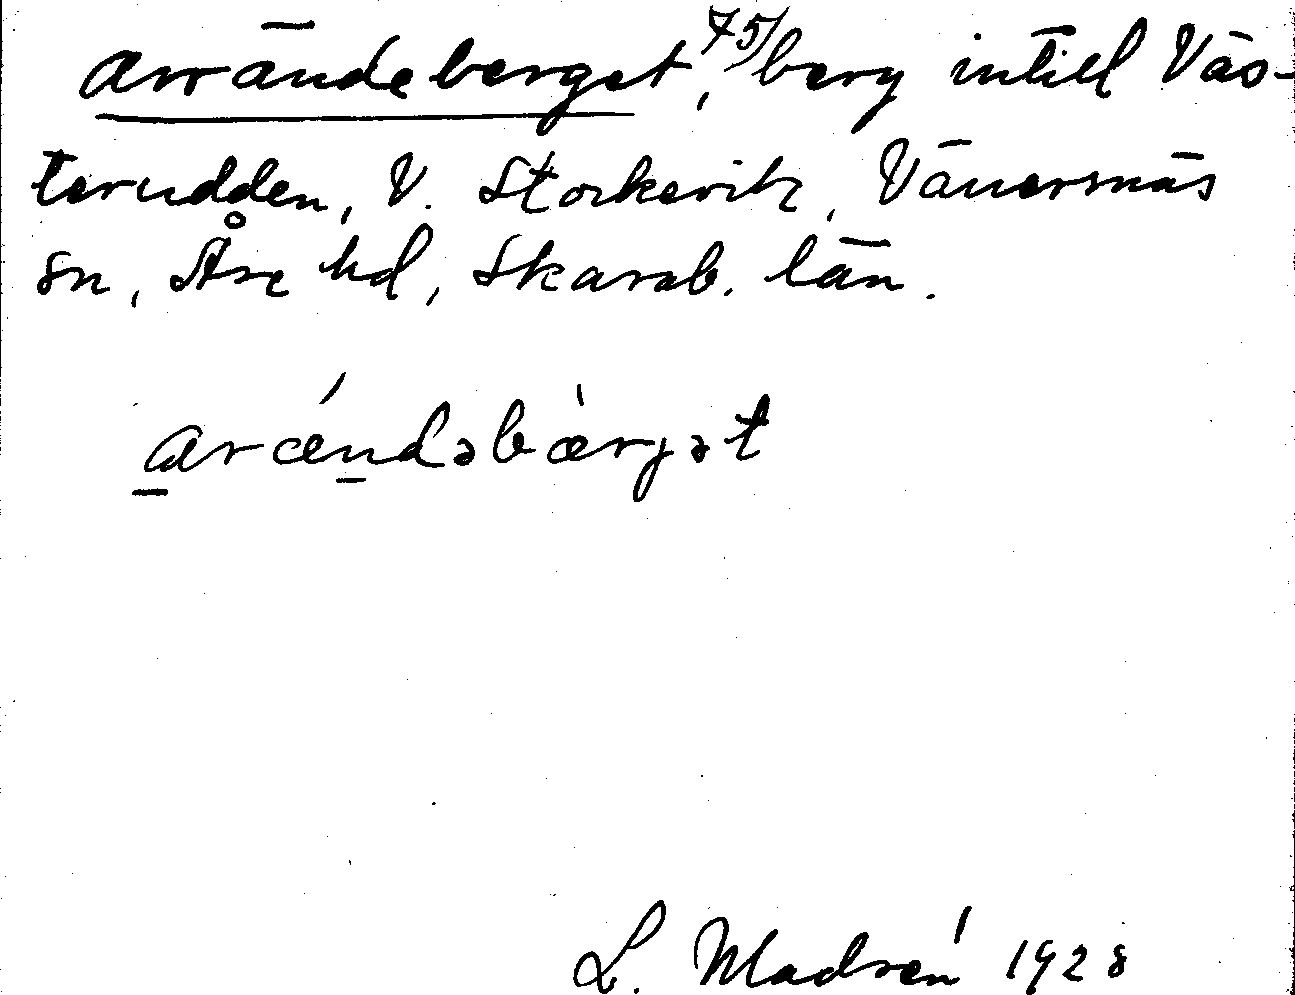 Arrändeberget, 75/ berg intill Väs-
terudden, V. Storkevik, Vänersnäs
sn, Åse hd, Skarab. län.
arǽndəbæ̀rjət
L. Madsén 1928